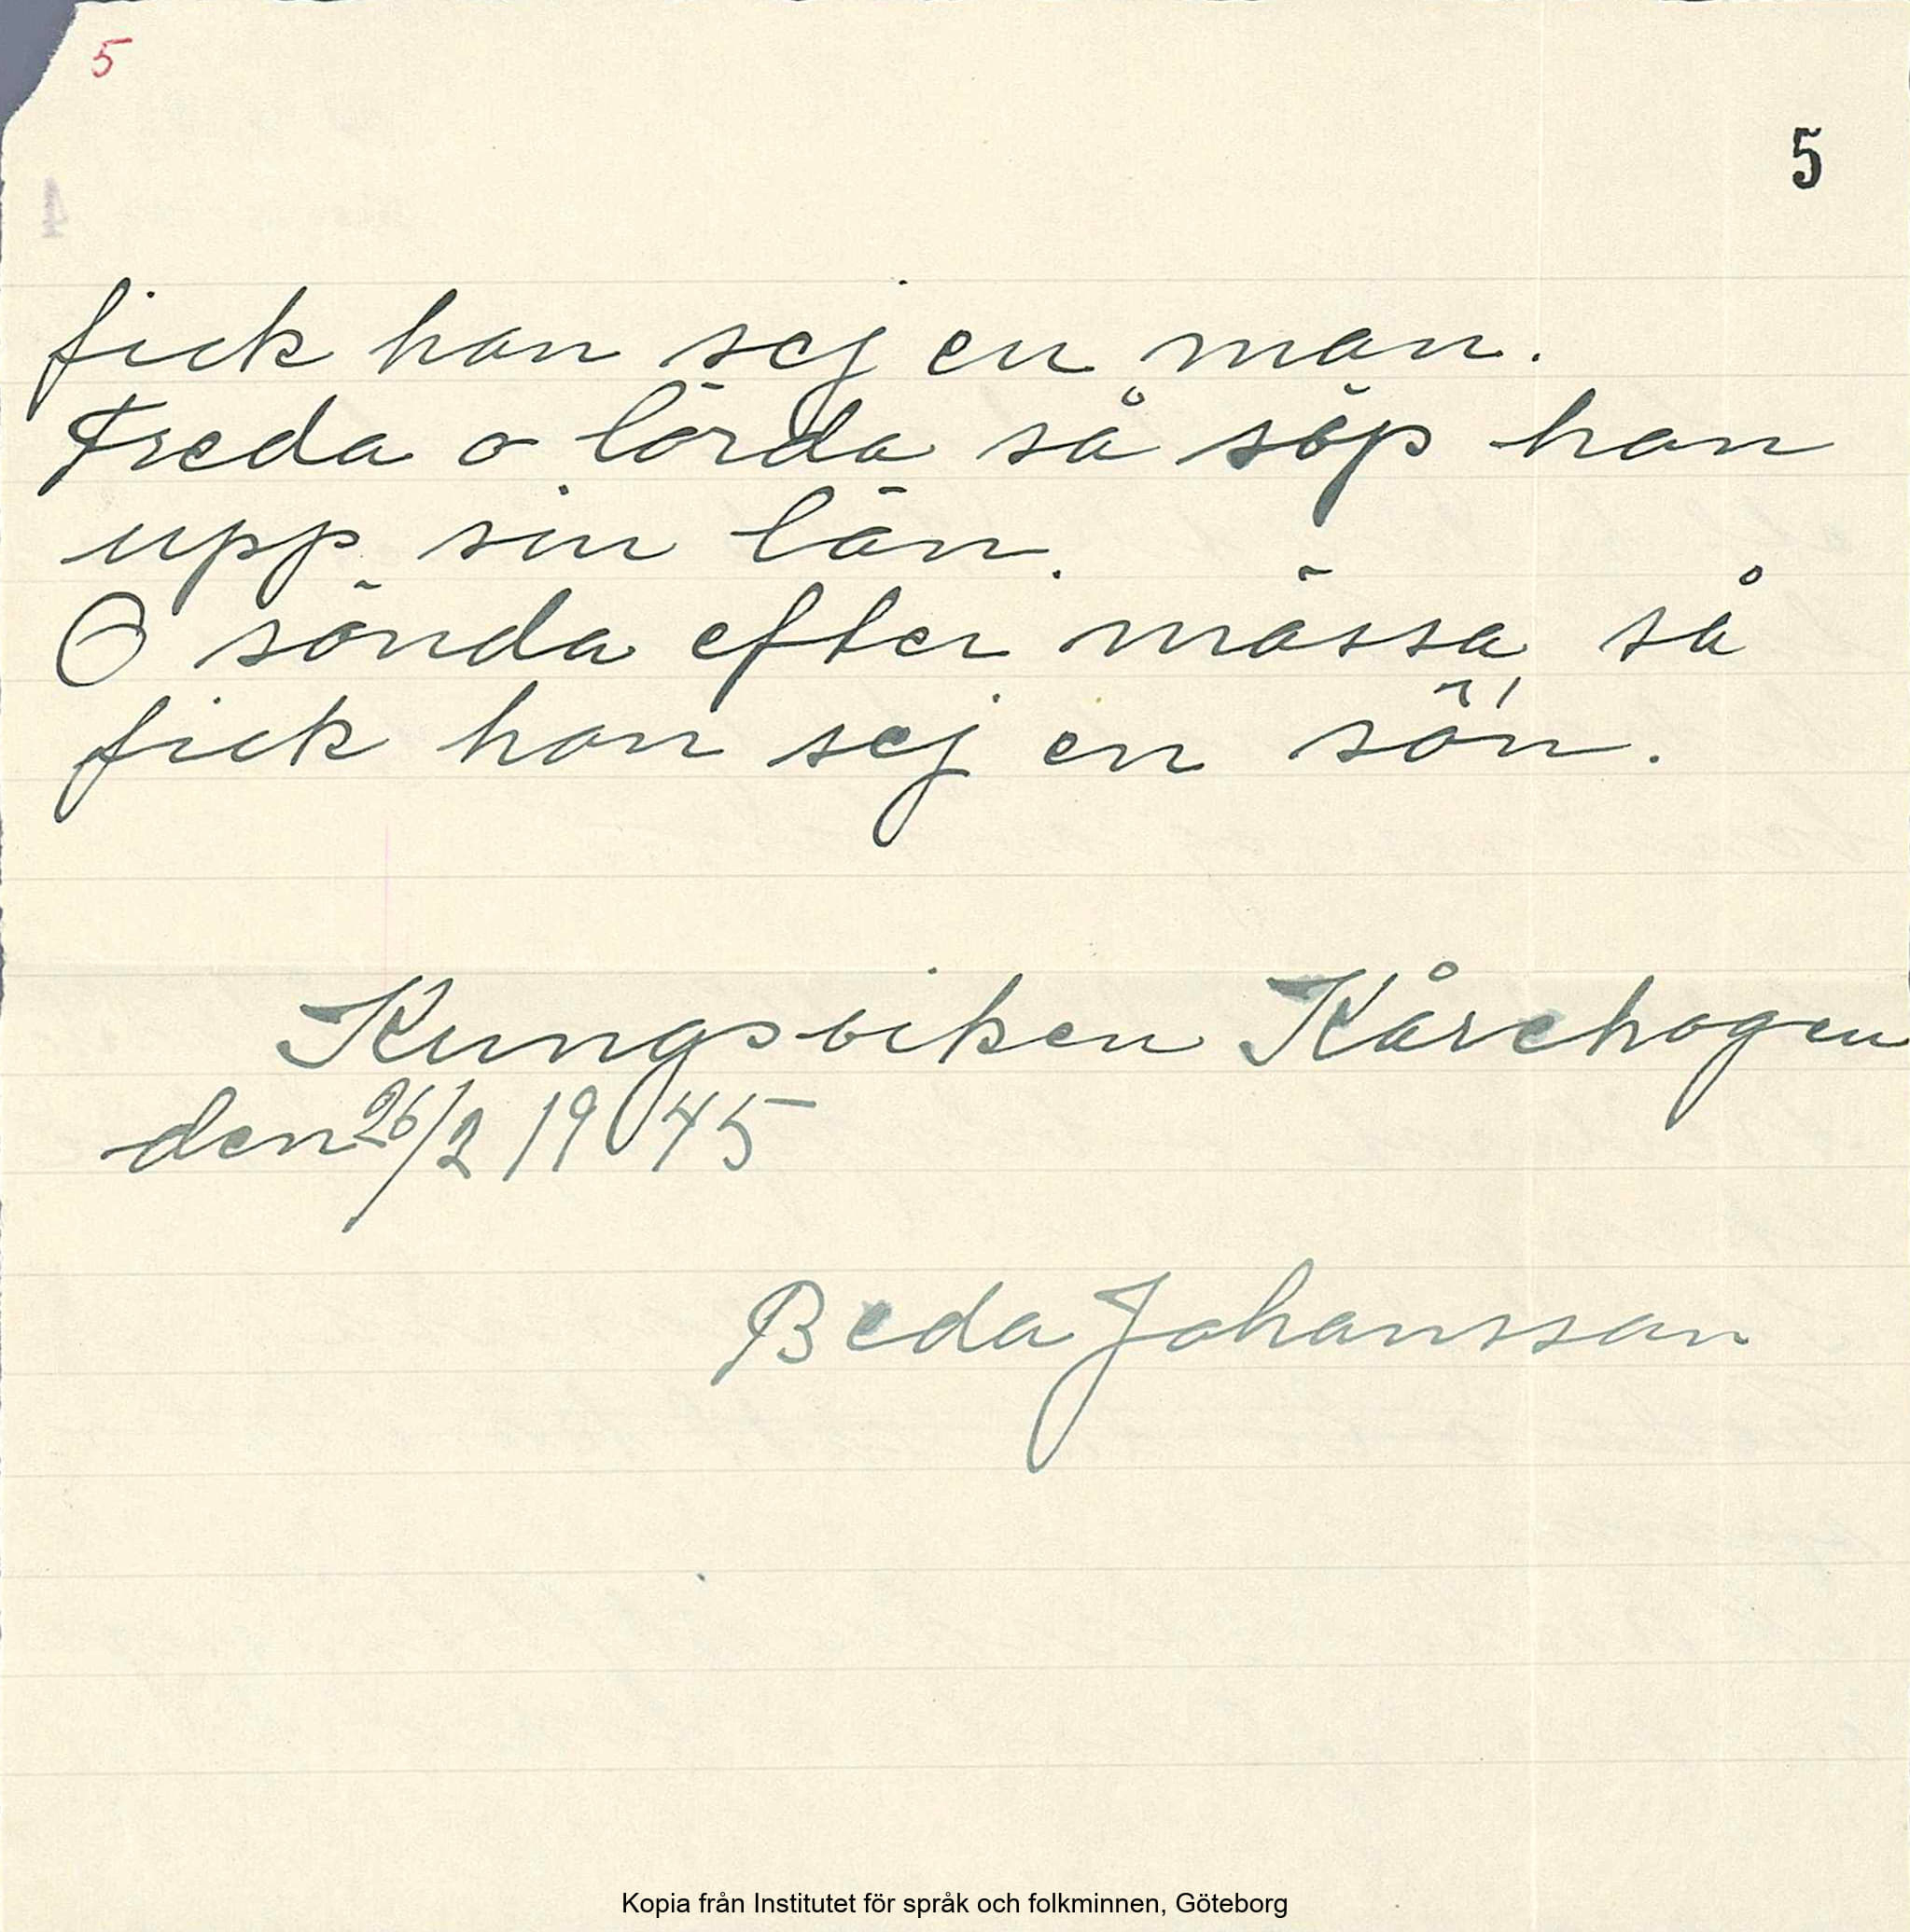 5
5
fick hon sej en man.
Freda o lörda så söp hon
upp sin län.
O sönda efter mässa så
fick hon sej en sön.
Kungsviken Kårehogen
den 26/2 1945
Beda Johansson
Kopia från Institutet för språk och folkminnen, Göteborg